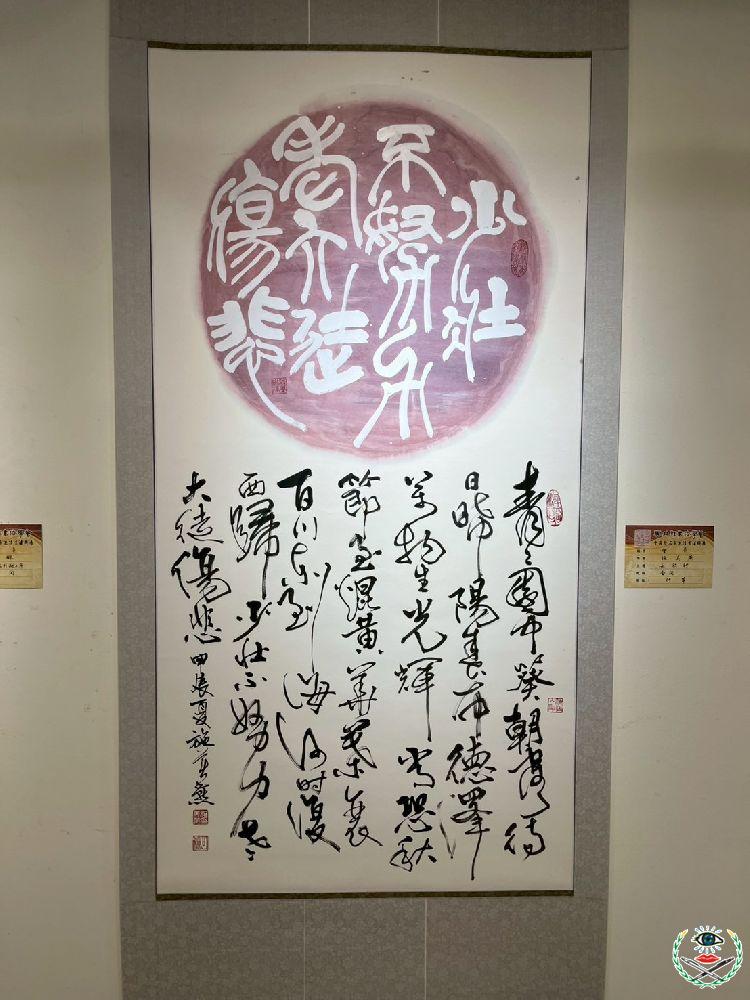 少壯
不努力
老大徒
傷悲
青々園中葵朝露待
日晞陽春布德澤
萬物生光輝常恐秋
節至焜黃華葉衰
百川東到海何時復
西歸少壯不努力老
大徒傷悲
甲辰夏施